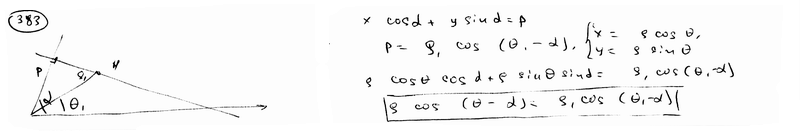 383
P
α
ρ₁
M
θ₁
x cos α + y sin α = P
P = ρ₁ cos (θ₁ - α), { x = ρ cos θ,
y = ρ sin θ
ρ cos θ cos α + ρ sin θ sin α = ρ₁ cos (θ₁ - α)
ρ cos (θ - α) = ρ₁ cos (θ₁ - α)